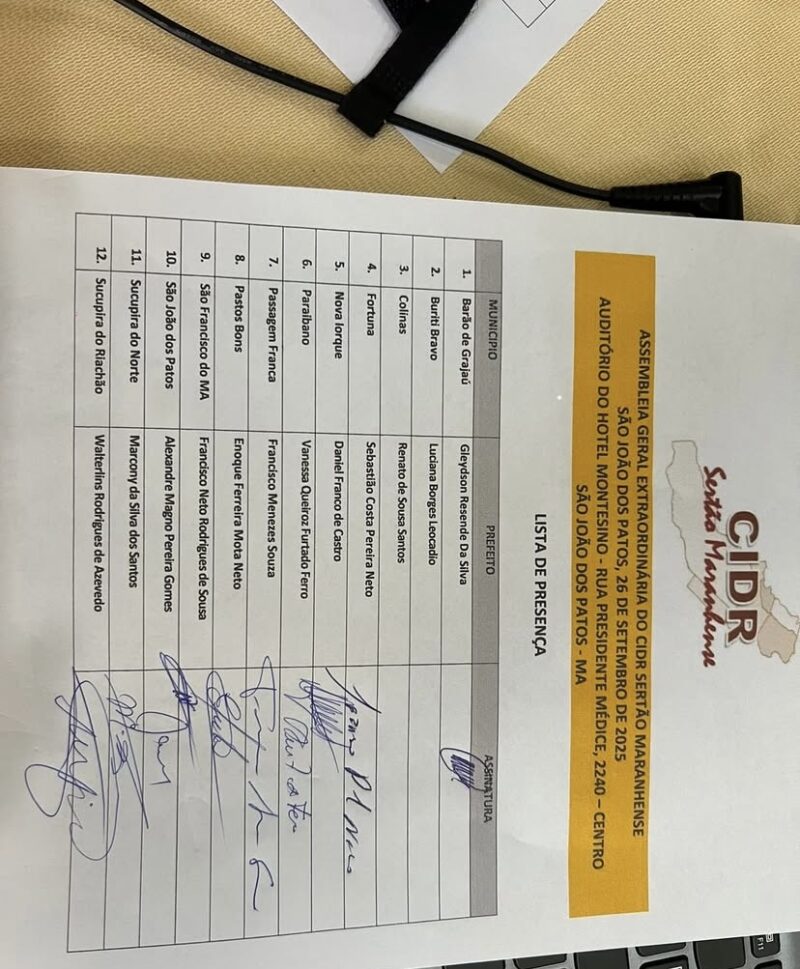 CIDR
Sertão Maranhense
ASSEMBLEIA GERAL EXTRAORDINÁRIA DO CIDR SERTÃO MARANHENSE
SÃO JOÃO DOS PATOS, 26 DE SETEMBRO DE 2025
AUDITÓRIO DO HOTEL MONTESINO - RUA PRESIDENTE MÉDICE, 2240 – CENTRO
SÃO JOÃO DOS PATOS - MA
LISTA DE PRESENÇA
MUNICIPIO PREFEITO ASSINATURA
1. Barão de Grajaú Gleydson Resende Da Silva
2. Buriti Bravo Luciana Borges Leocadio
3. Colinas Renato de Sousa Santos
4. Fortuna Sebastião Costa Pereira Neto
5. Nova Iorque Daniel Franco de Castro
6. Paraibano Vanessa Queiroz Furtado Ferro
7. Passagem Franca Francisco Menezes Souza
8. Pastos Bons Enoque Ferreira Mota Neto
9. São Francisco do MA Francisco Neto Rodrigues de Sousa
10. São João dos Patos Alexandre Magno Pereira Gomes
11. Sucupira do Norte Marcony da Silva dos Santos
12. Sucupira do Riachão Walterlins Rodrigues de Azevedo
F11